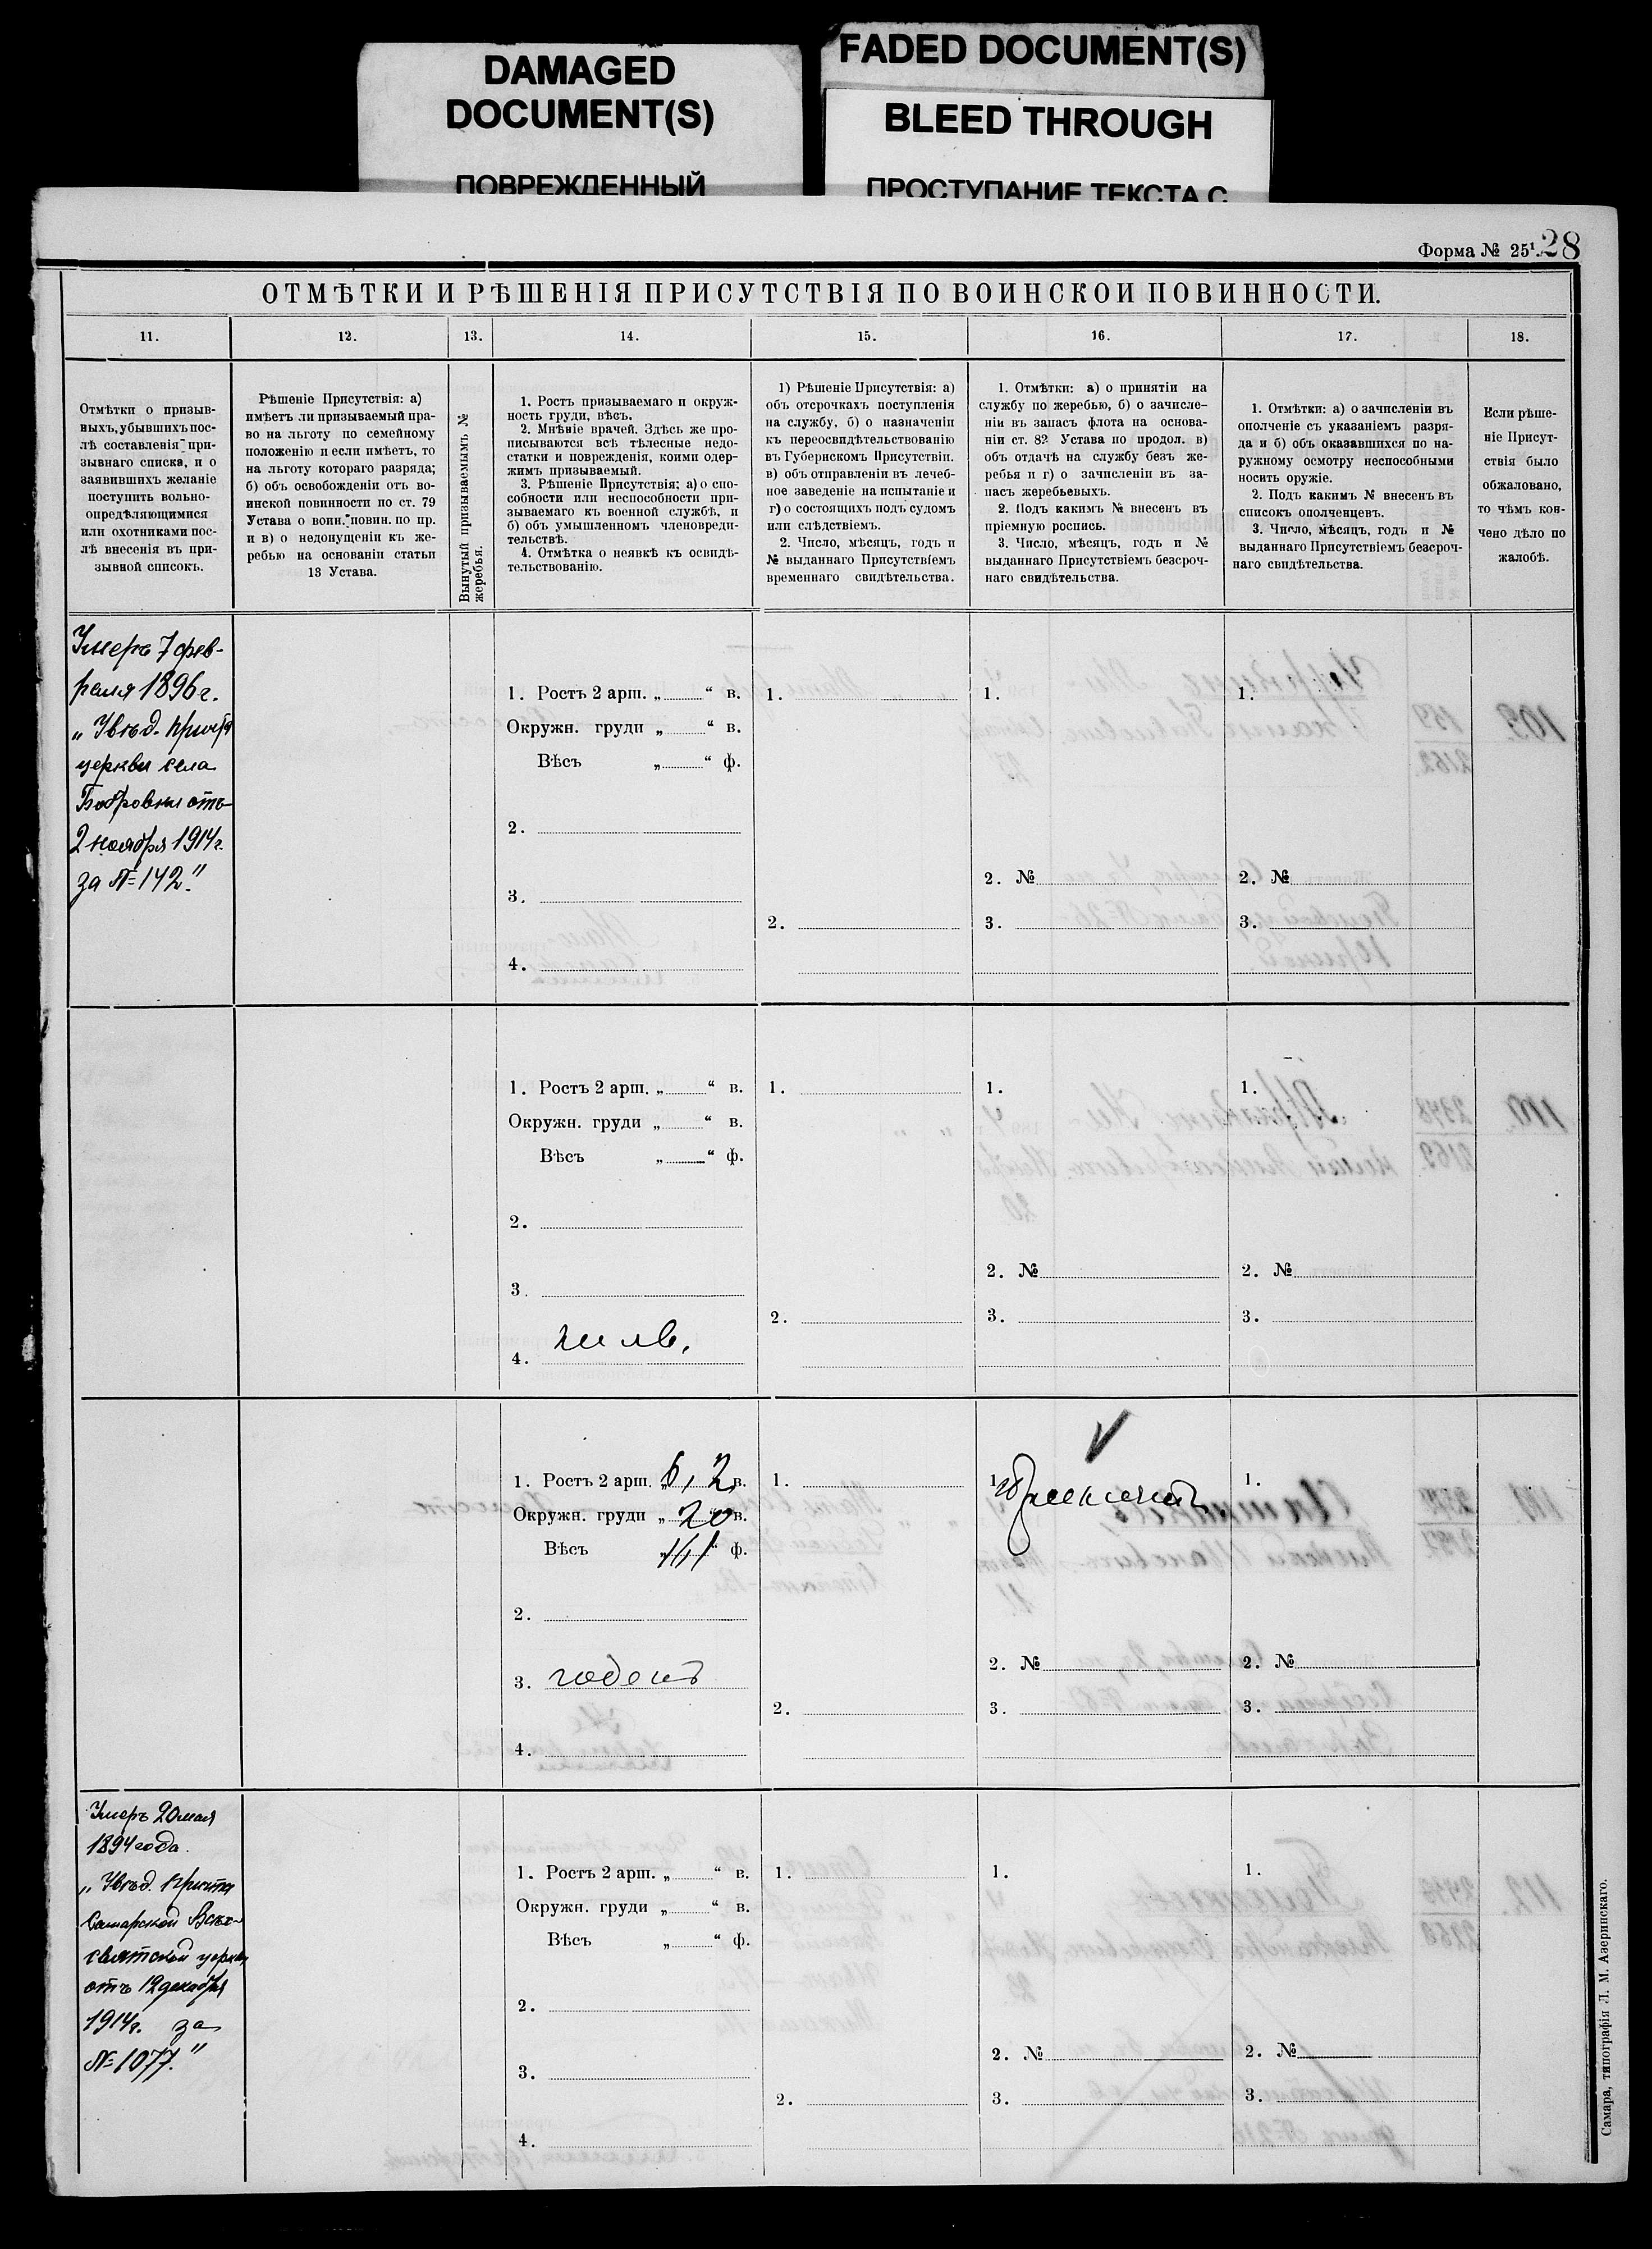 DAMAGED
DOCUMENT(S)
ПОВРЕЖДЕННЫЙ
FADED DOCUMENT(S)
BLEED THROUGH
ПРОСТУПАНИЕ ТЕКСТА С
Форма № 25¹.
28
ОТМѢТКИ И РѢШЕНІЯ ПРИСУТСТВІЯ ПО ВОИНСКОЙ ПОВИННОСТИ.
11.
12.
13.
14.
15.
16.
17.
18.
Отмѣтки о призыв-
ныхъ, убывшихъ пос-
лѣ составленія при-
зывнаго списка, и о
заявившихъ желаніе
поступить вольно-
опредѣляющимися
или охотниками пос-
лѣ внесенія въ при-
зывной списокъ.
Рѣшеніе Присутствія: а)
имѣетъ ли призываемый пра-
во на льготу по семейному
положенію и если имѣетъ, то
на льготу котораго разряда;
б) объ освобожденіи отъ во-
инской повинности по ст. 79
Устава о воин. повин. по пр.
и в) о недопущеніи къ же-
ребью на основаніи статьи
13 Устава.
Вынутый призываемымъ №
жеребья.
1. Ростъ призываемаго и окруж-
ность груди, вѣсъ.
2. Мнѣніе врачей. Здѣсь же про-
писываются всѣ тѣлесные недо-
статки и поврежденія, коими одер-
жимъ призываемый.
3. Рѣшеніе Присутствія; а) о спо-
собности или неспособности при-
зываемаго къ военной службѣ, и
б) объ умышленномъ членовреди-
тельствѣ.
4. Отмѣтка о неявкѣ къ освидѣ-
тельствованію.
1) Рѣшеніе Присутствія: а)
объ отсрочкахъ поступленія
на службу, б) о назначеніи
къ переосвидѣтельствованію
въ Губернскомъ Присутствіи.
в) объ отправленіи въ лечеб-
ное заведеніе на испытаніе и
г) о состоящихъ подъ судомъ
или слѣдствіемъ.
2. Число, мѣсяцъ, годъ и
№ выданнаго Присутствіемъ
временнаго свидѣтельства.
1. Отмѣтки: а) о принятіи на
службу по жеребью, б) о зачисле-
ніи въ запасъ флота на основа-
ніи ст. 82 Устава по продол. в)
объ отдачѣ на службу безъ же-
ребья и г) о зачисленіи въ за-
пасъ жеребьевыхъ.
2. Подъ какимъ № внесенъ въ
пріемную роспись.
3. Число, мѣсяцъ, годъ и №
выданнаго Присутствіемъ безсроч-
наго свидѣтельства.
1. Отмѣтки: а) о зачисленіи въ
ополченіе съ указаніемъ разря-
да и б) объ оказавшихся по на-
ружному осмотру неспособными
носить оружіе.
2. Подъ какимъ № внесенъ въ
списокъ ополченцевъ.
3. Число, мѣсяцъ, годъ и №
выданнаго Присутствіемъ безсроч-
наго свидѣтельства.
Если рѣше-
ніе Присут-
ствія было
обжаловано,
то чѣмъ кон-
чено дѣло по
жалобѣ.
Умеръ 7 фев-
раля 1896 г.
„Увѣд. причта
церкви села
Бобровки отъ
2 ноября 1914 г.
за № 142."
1. Ростъ 2 арш. „ “ в.
Окружн. груди „ “ в.
Вѣсъ „ “ ф.
2.
3.
4.
1.
2.
1.
2. №
3.
1.
2. №
3.
1. Ростъ 2 арш. „ “ в.
Окружн. груди „ “ в.
Вѣсъ „ “ ф.
2.
3.
4.
1.
2.
1.
2. №
3.
1.
2. №
3.
1. Ростъ 2 арш. „ 2 в.
Окружн. груди „ 20 в.
Вѣсъ „ “ ф.
2.
3. годенъ
4.
1.
2.
1.
2. №
3.
1.
2. №
3.
Умеръ 20 мая
1894 года.
„Увѣд. причта
Самарской Всѣх-
святской церкви
отъ 12 декабря
1914 г. за
№ 1077."
1. Ростъ 2 арш. „ “ в.
Окружн. груди „ “ в.
Вѣсъ „ “ ф.
2.
3.
4.
1.
2.
1.
2. №
3.
1.
2. №
3.
Самара, типографія Л. М. Азеринскаго.